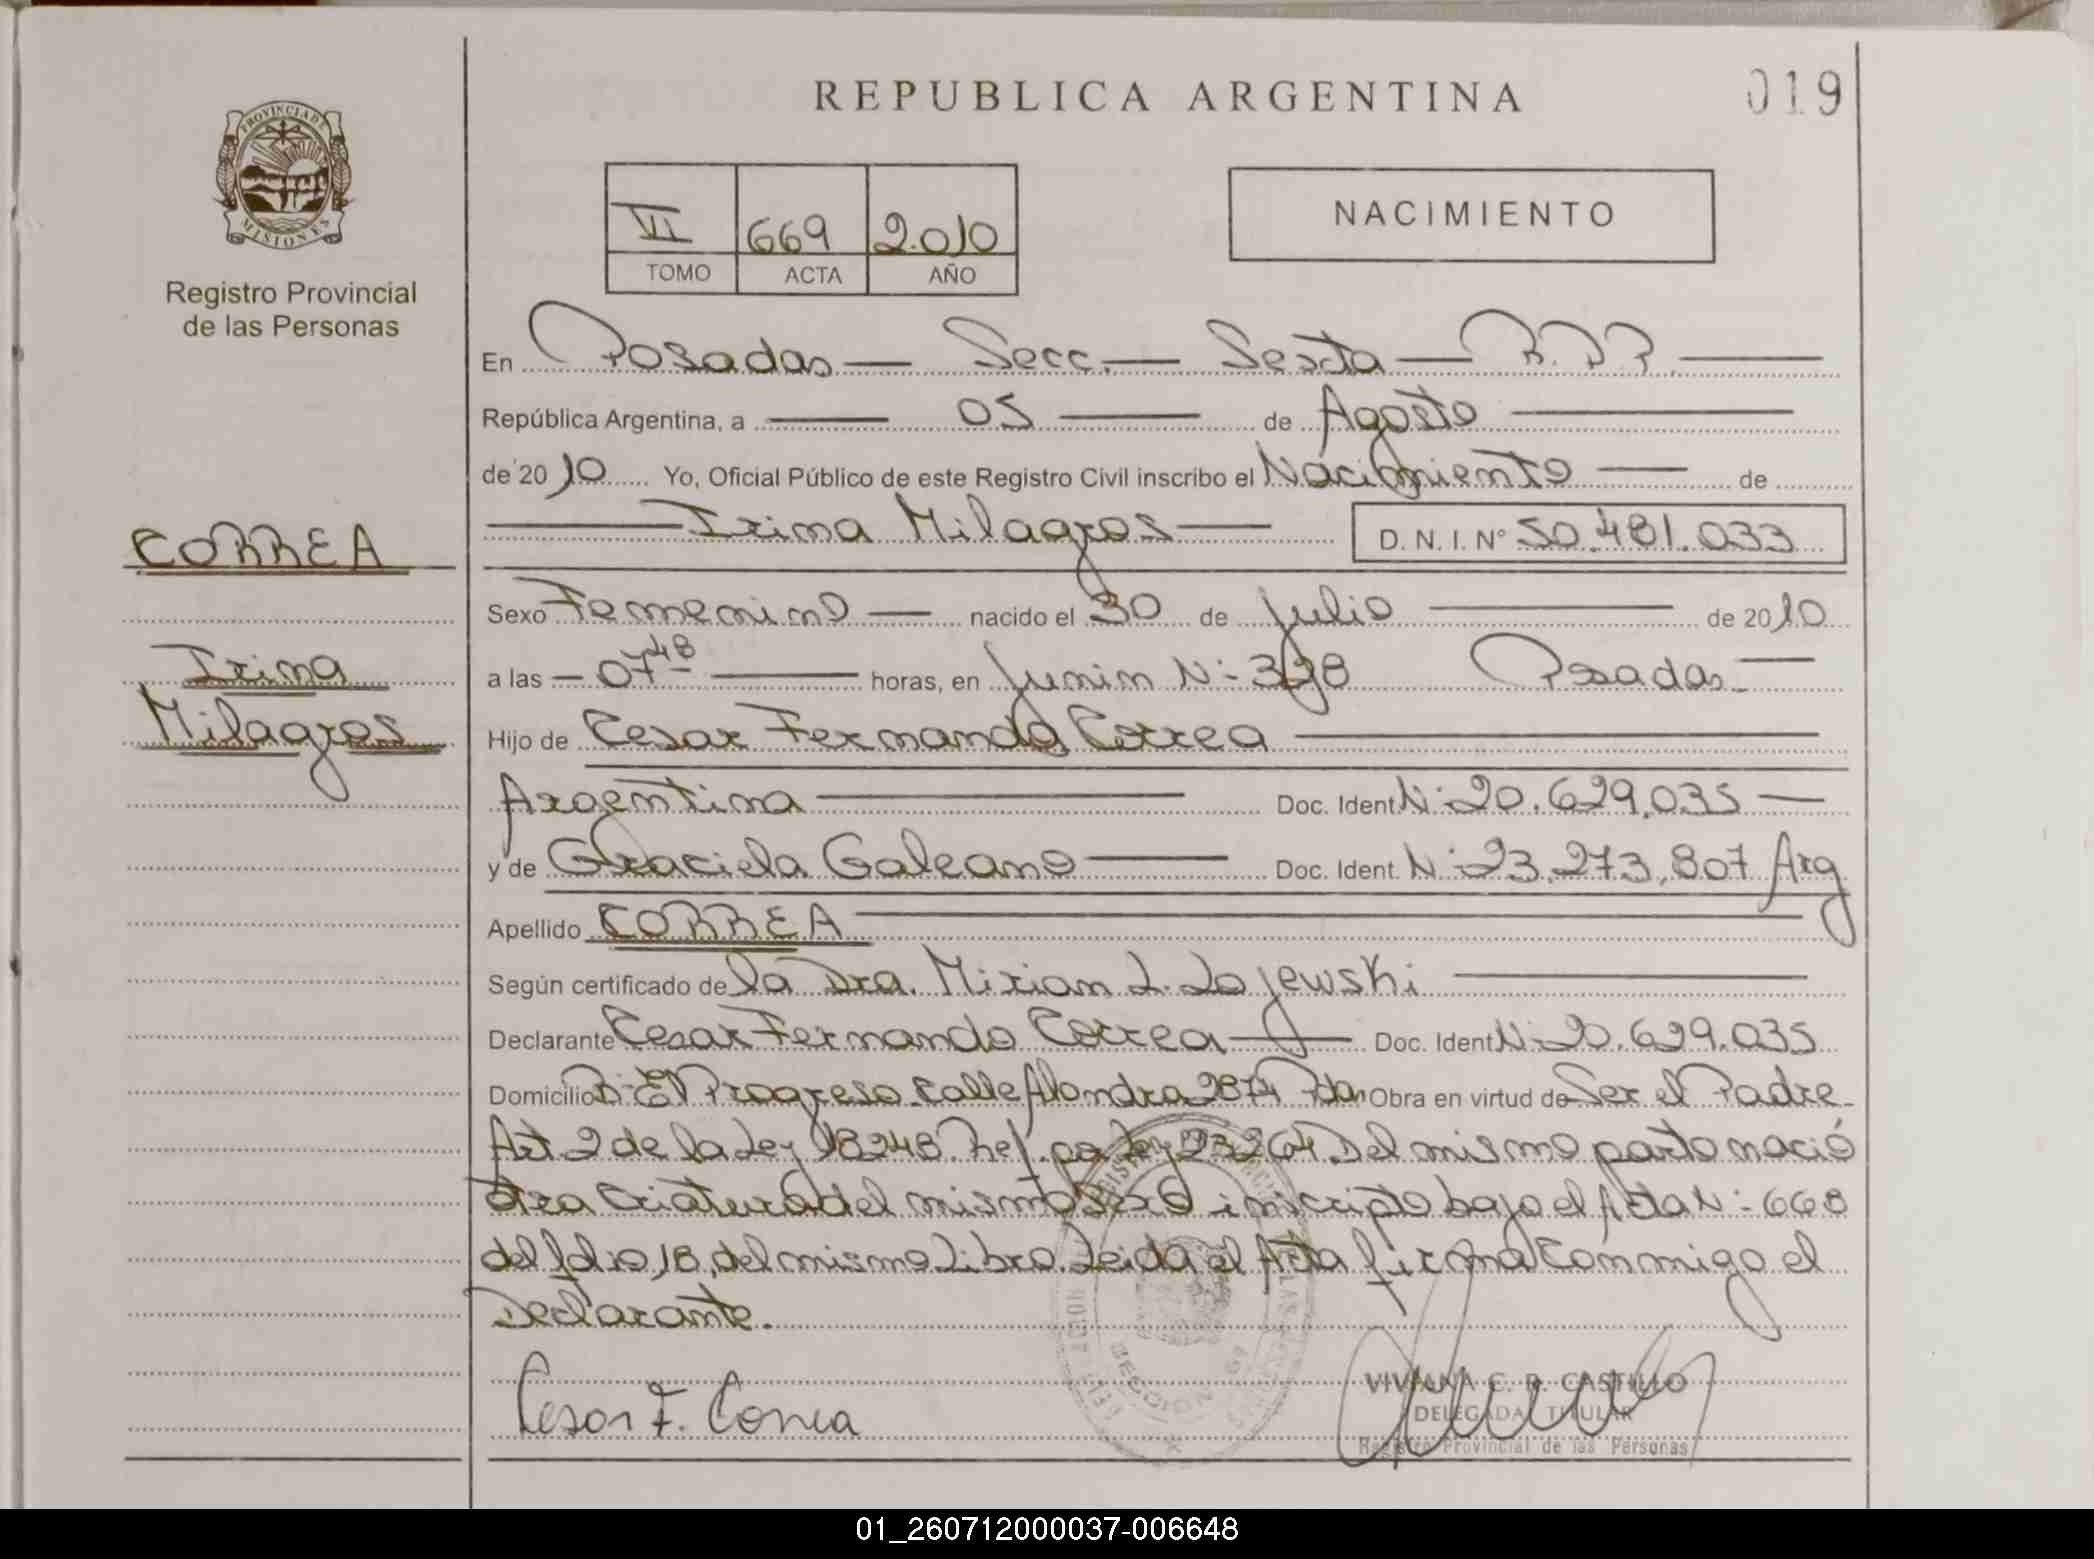 REPUBLICA ARGENTINA
019
PROVINCIA DE
MISIONES
Registro Provincial
de las Personas
VI 669 2.010
TOMO ACTA AÑO
NACIMIENTO
En Posadas — Secc. — Sexta — R.P.P.
República Argentina, a — 05 — de Agosto
de 2010 Yo, Oficial Público de este Registro Civil inscribo el Nacimiento — de
Irina Milagros — D. N. I. Nº 50.481.033
CORREA
Irina
Milagros
Sexo Femenino — nacido el 30 de Julio — de 2010
a las — 07 48 — horas, en Junin Nº 398 Posadas —
Hijo de Cesar Fernando Correa
Argentina — Doc. Ident. Nº 20.629.035 —
y de Graciela Galeano — Doc. Ident. Nº 23.273.807 Arg
Apellido CORREA
Según certificado de la Dra. Mirian L. Lajewski
Declarante Cesar Fernando Correa — Doc. Ident Nº 20.629.035
Domicilio Bº El Progreso Calle Alondra 2874 Pdas Obra en virtud de Ser el Padre.
Art. 2 de la Ley 18248. Ref. por Ley 23264. Del mismo parto nació
otra Criatura del mismo Sexo inscripto bajo el Acta Nº 668
del folio 18, del mismo Libro. Leida el Acta firma Conmigo el
Declarante.
Cesar F. Correa
VIVIANA C. R. CASTILLO
DELEGADA TITULAR
Registro Provincial de las Personas
01_260712000037-006648